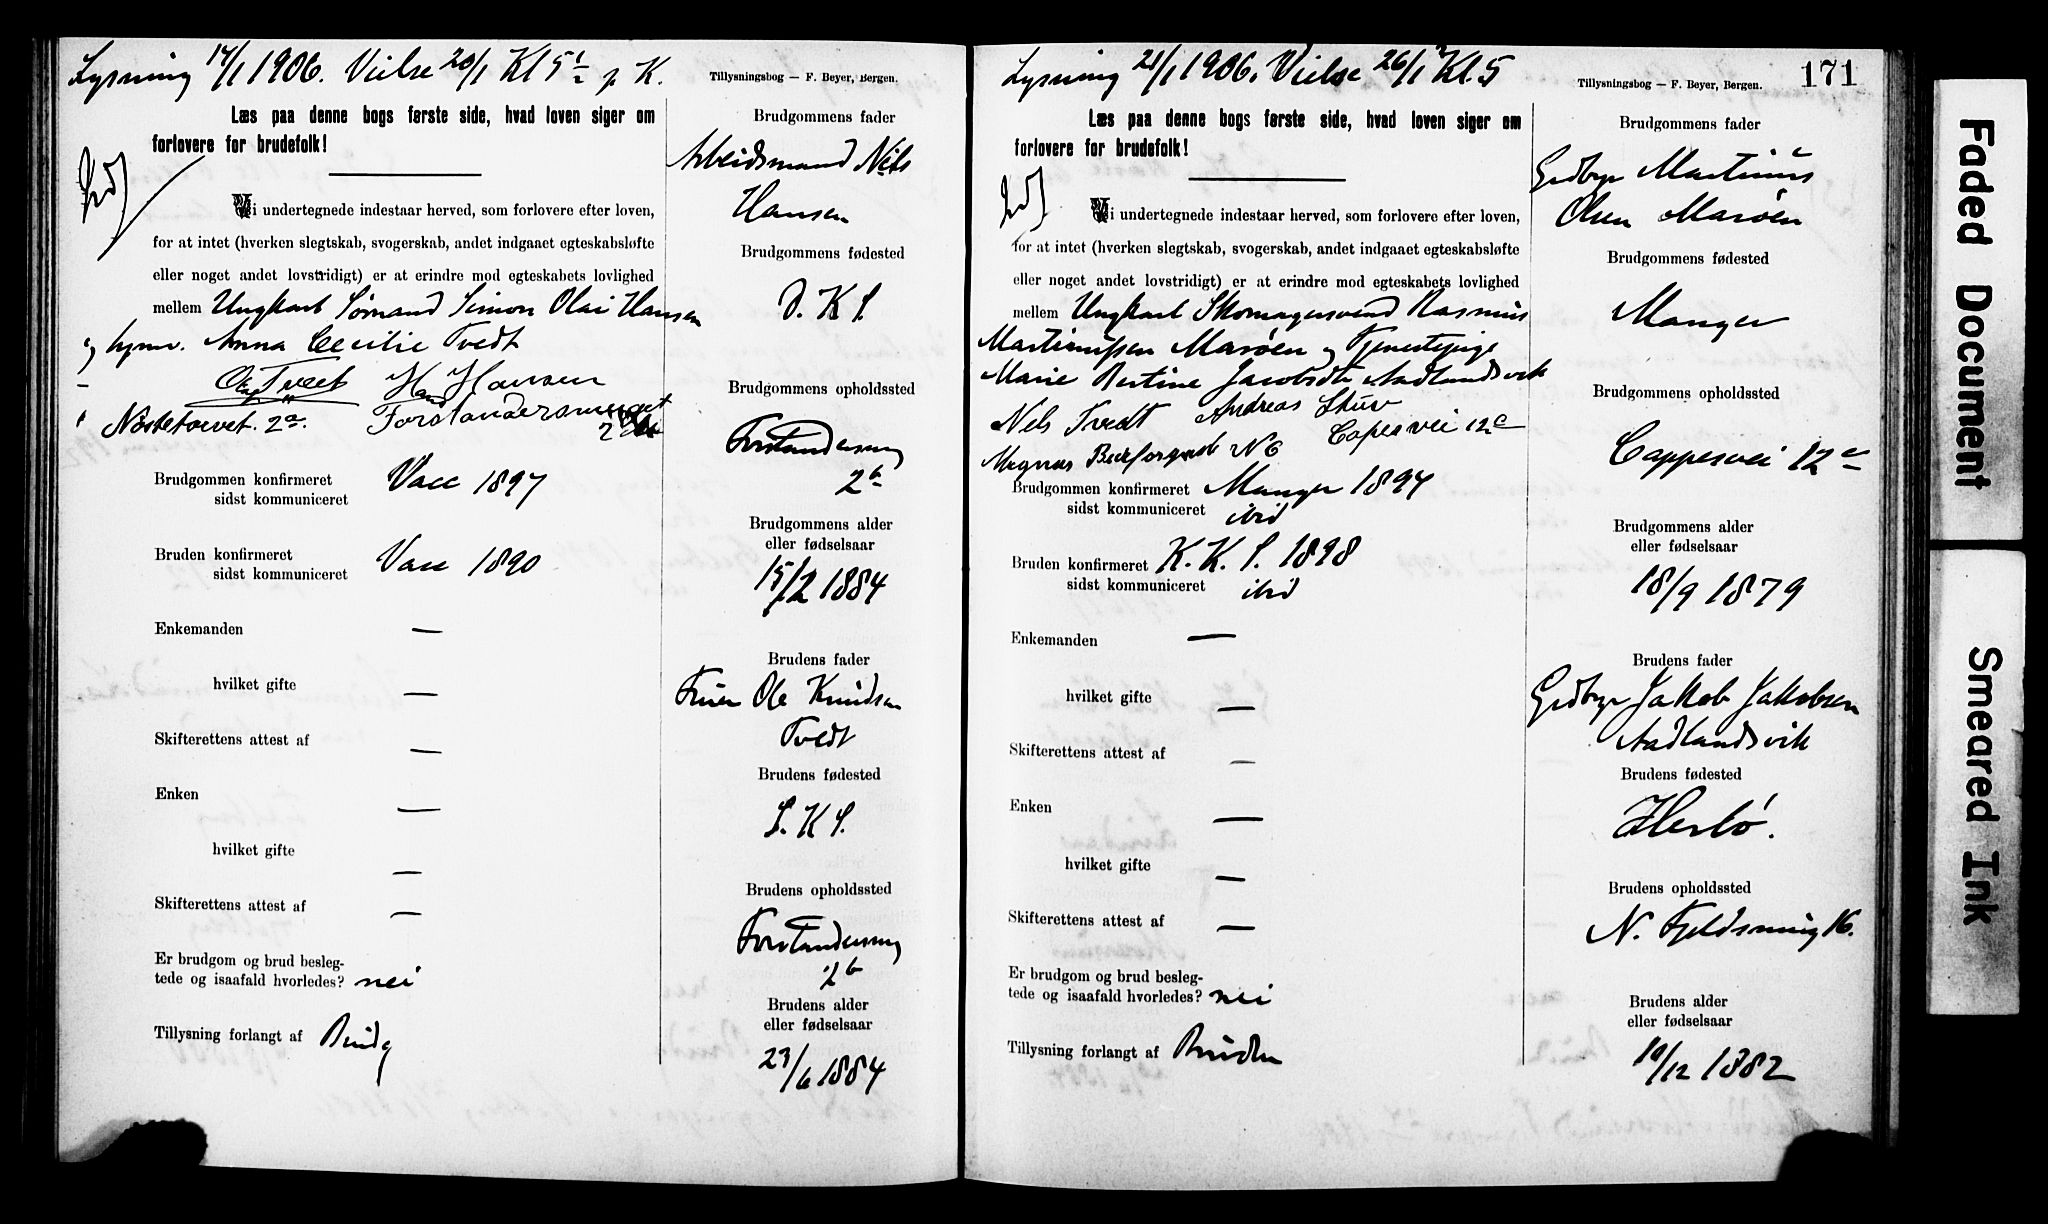 Lysning 14/1 1906. Vielse 20/1 Kl 5 1/2 p. K.
Tillysningsbog — F. Beyer, Bergen.
Læs paa denne bogs første side, hvad loven siger om
forlovere for brudefolk!
Vi undertegnede indestaar herved, som forlovere efter loven,
for at intet (hverken slegtskab, svogerskab, andet indgaaet egteskabsløfte
eller noget andet lovstridigt) er at erindre mod egteskabets lovlighed
mellem Ungkarl Sømand Simon Olai Hansen
og Anna Cecilie Tvedt
Tveet Hansen
Nøstetorvet. 2a. Forstandersmuget
Brudgommen konfirmeret Vace 1897
sidst kommuniceret
Bruden konfirmeret Vace 1890
sidst kommuniceret
Enkemanden —
hvilket gifte —
Skifterettens attest af —
Enken —
hvilket gifte —
Skifterettens attest af —
Er brudgom og brud besleg-
tede og isaafald hvorledes? nei
Tillysning forlangt af Brudg
Brudgommens fader
Arbeidsmand Nils
Hansen
Brudgommens fødested
D. K S.
Brudgommens opholdssted
Forstandersmg
2b
Brudgommens alder
eller fødselsaar
15/2 1884
Brudens fader
Ole Knudsen
Tvedt
Brudens fødested
S. K S.
Brudens opholdssted
Forstandersmg
2b
Brudens alder
eller fødselsaar
23/6 1884
Lysning 21/1 1906. Vielse 26/1 Kl. 5
Tillysningsbog — F. Beyer, Bergen.
171
Læs paa denne bogs første side, hvad loven siger om
forlovere for brudefolk!
Vi undertegnede indestaar herved, som forlovere efter loven,
for at intet (hverken slegtskab, svogerskab, andet indgaaet egteskabsløfte
eller noget andet lovstridigt) er at erindre mod egteskabets lovlighed
mellem Ungkarl Skomagersvend Rasmus
Martinussen Marøen og Tjenestepige
Marie Bertine Jacobsdtr Aadlandsvik
Nels Tvedt Andreas
Magnus N 6 Capesvei 12c
Brudgommen konfirmeret Manger 1894
sidst kommuniceret ibid
Bruden konfirmeret K. K. S. 1898
sidst kommuniceret ibid
Enkemanden —
hvilket gifte —
Skifterettens attest af —
Enken —
hvilket gifte —
Skifterettens attest af —
Er brudgom og brud besleg-
tede og isaafald hvorledes? nei
Tillysning forlangt af Bruden
Brudgommens fader
Grdbgr Martinus
Olsen Marøen
Brudgommens fødested
Manger
Brudgommens opholdssted
Cappesvei 12c
Brudgommens alder
eller fødselsaar
18/9 1879
Brudens fader
Grdbgr Jakob Jakobsen
Aadlandsvik
Brudens fødested
Herlø.
Brudens opholdssted
N. Fjeldsmug 16.
Brudens alder
eller fødselsaar
10/12 1882
Faded Document
Smeared Ink